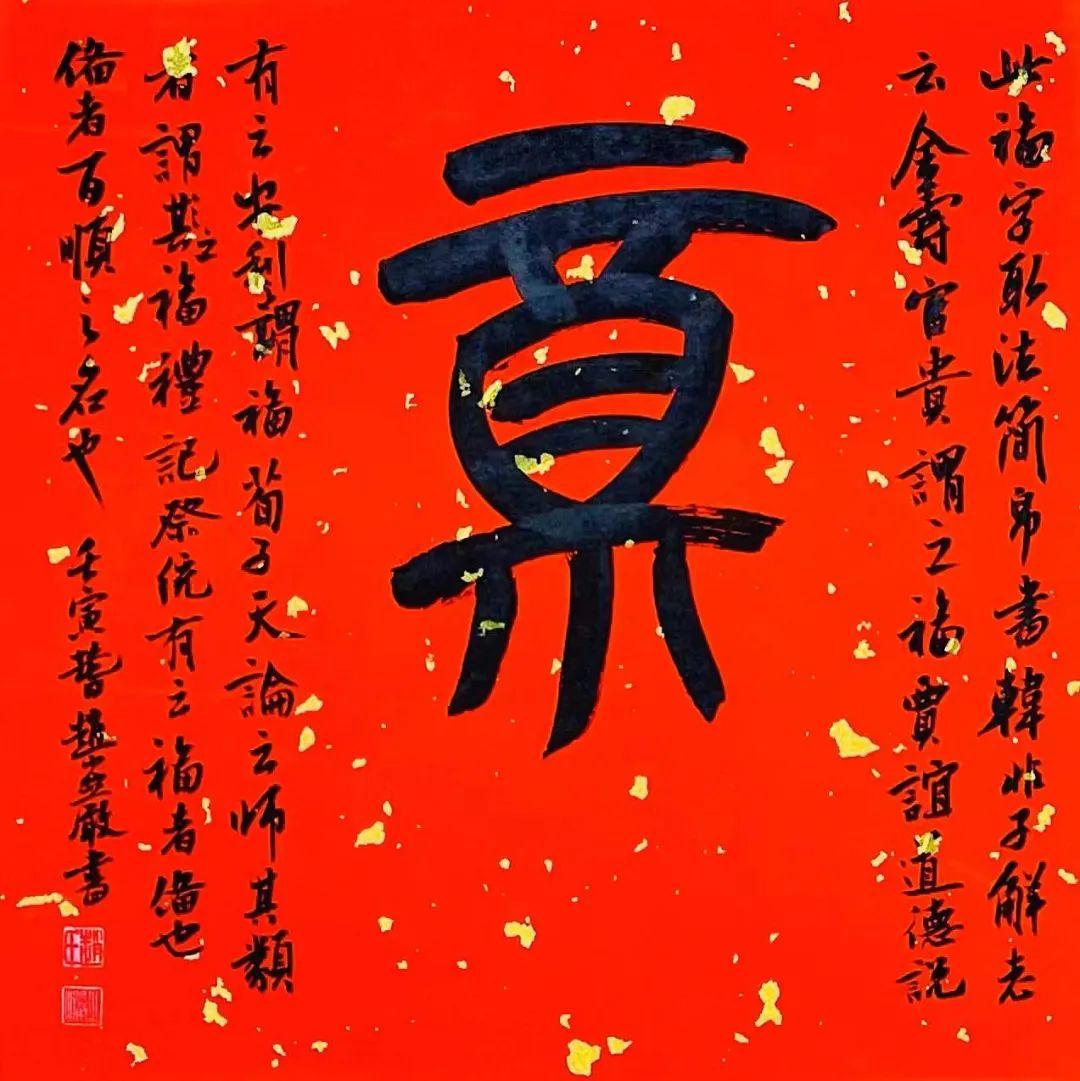 此福字取法简帛書韓非子解老
云全壽富貴謂之福賈誼道德説
福
有云安利謂福荀子天論云師其類
者謂斯福禮記祭統有云福者備也
備者百順之名也 壬寅趙嚴書